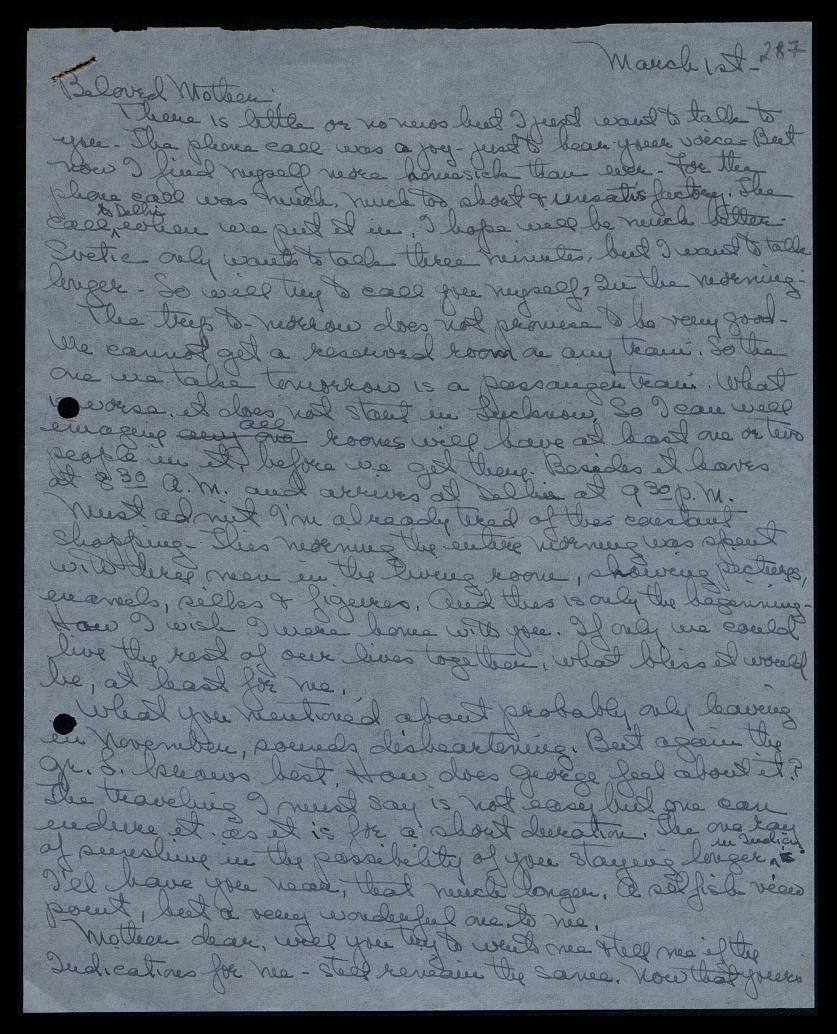 287
March 1st-
Beloved Mother;
There is little or no news but I just want to talk to
you - The phone call was a joy - just to hear your voice - But
now I find myself more homesick than ever - For the
phone call was much, much too short & unsatisfactory. The
call, to Delhi when we put it in, I hope will be much better.
Svetic only wants to talk three minutes, but I want to talk
longer - So will try to call you myself, in the morning -
The trip to-morrow does not promise to be very good -
We cannot get a reserved room on any train. So the
one we take tomorrow is a passanger train. What
is worse, it does not start in Lucknow, So I can well
emagine any one all rooms will have at least one or two
people in it, before we get there. Besides it leaves
at 8 30 A.M. and arrives at Delhi at 9 30 p.m.
Must admit I'm already tired of this constant
shopping - This morning the entire morning was spent
with three men in the living room, showing pictures,
enamels, silks & figures. And this is only the beginning -
How I wish I were home with you. If only we could
live the rest of our lives together, what bliss it would
be, at least for me.
What you mentioned about probably only leaving
in November, sounds disheartening. But again the
Gr. S. knows best. How does George feel about it?
The traveling I must say is not easy but one can
endure it. as it is for a short duration. The one ray
of sunshine in the possibility of you staying longer in India, is
I'll have you near, that much longer. A selfish view
point, but a very wonderful one to me.
Mother dear, will you try to write me & tell me if the
Indications for me - still remain the same. Now that yours